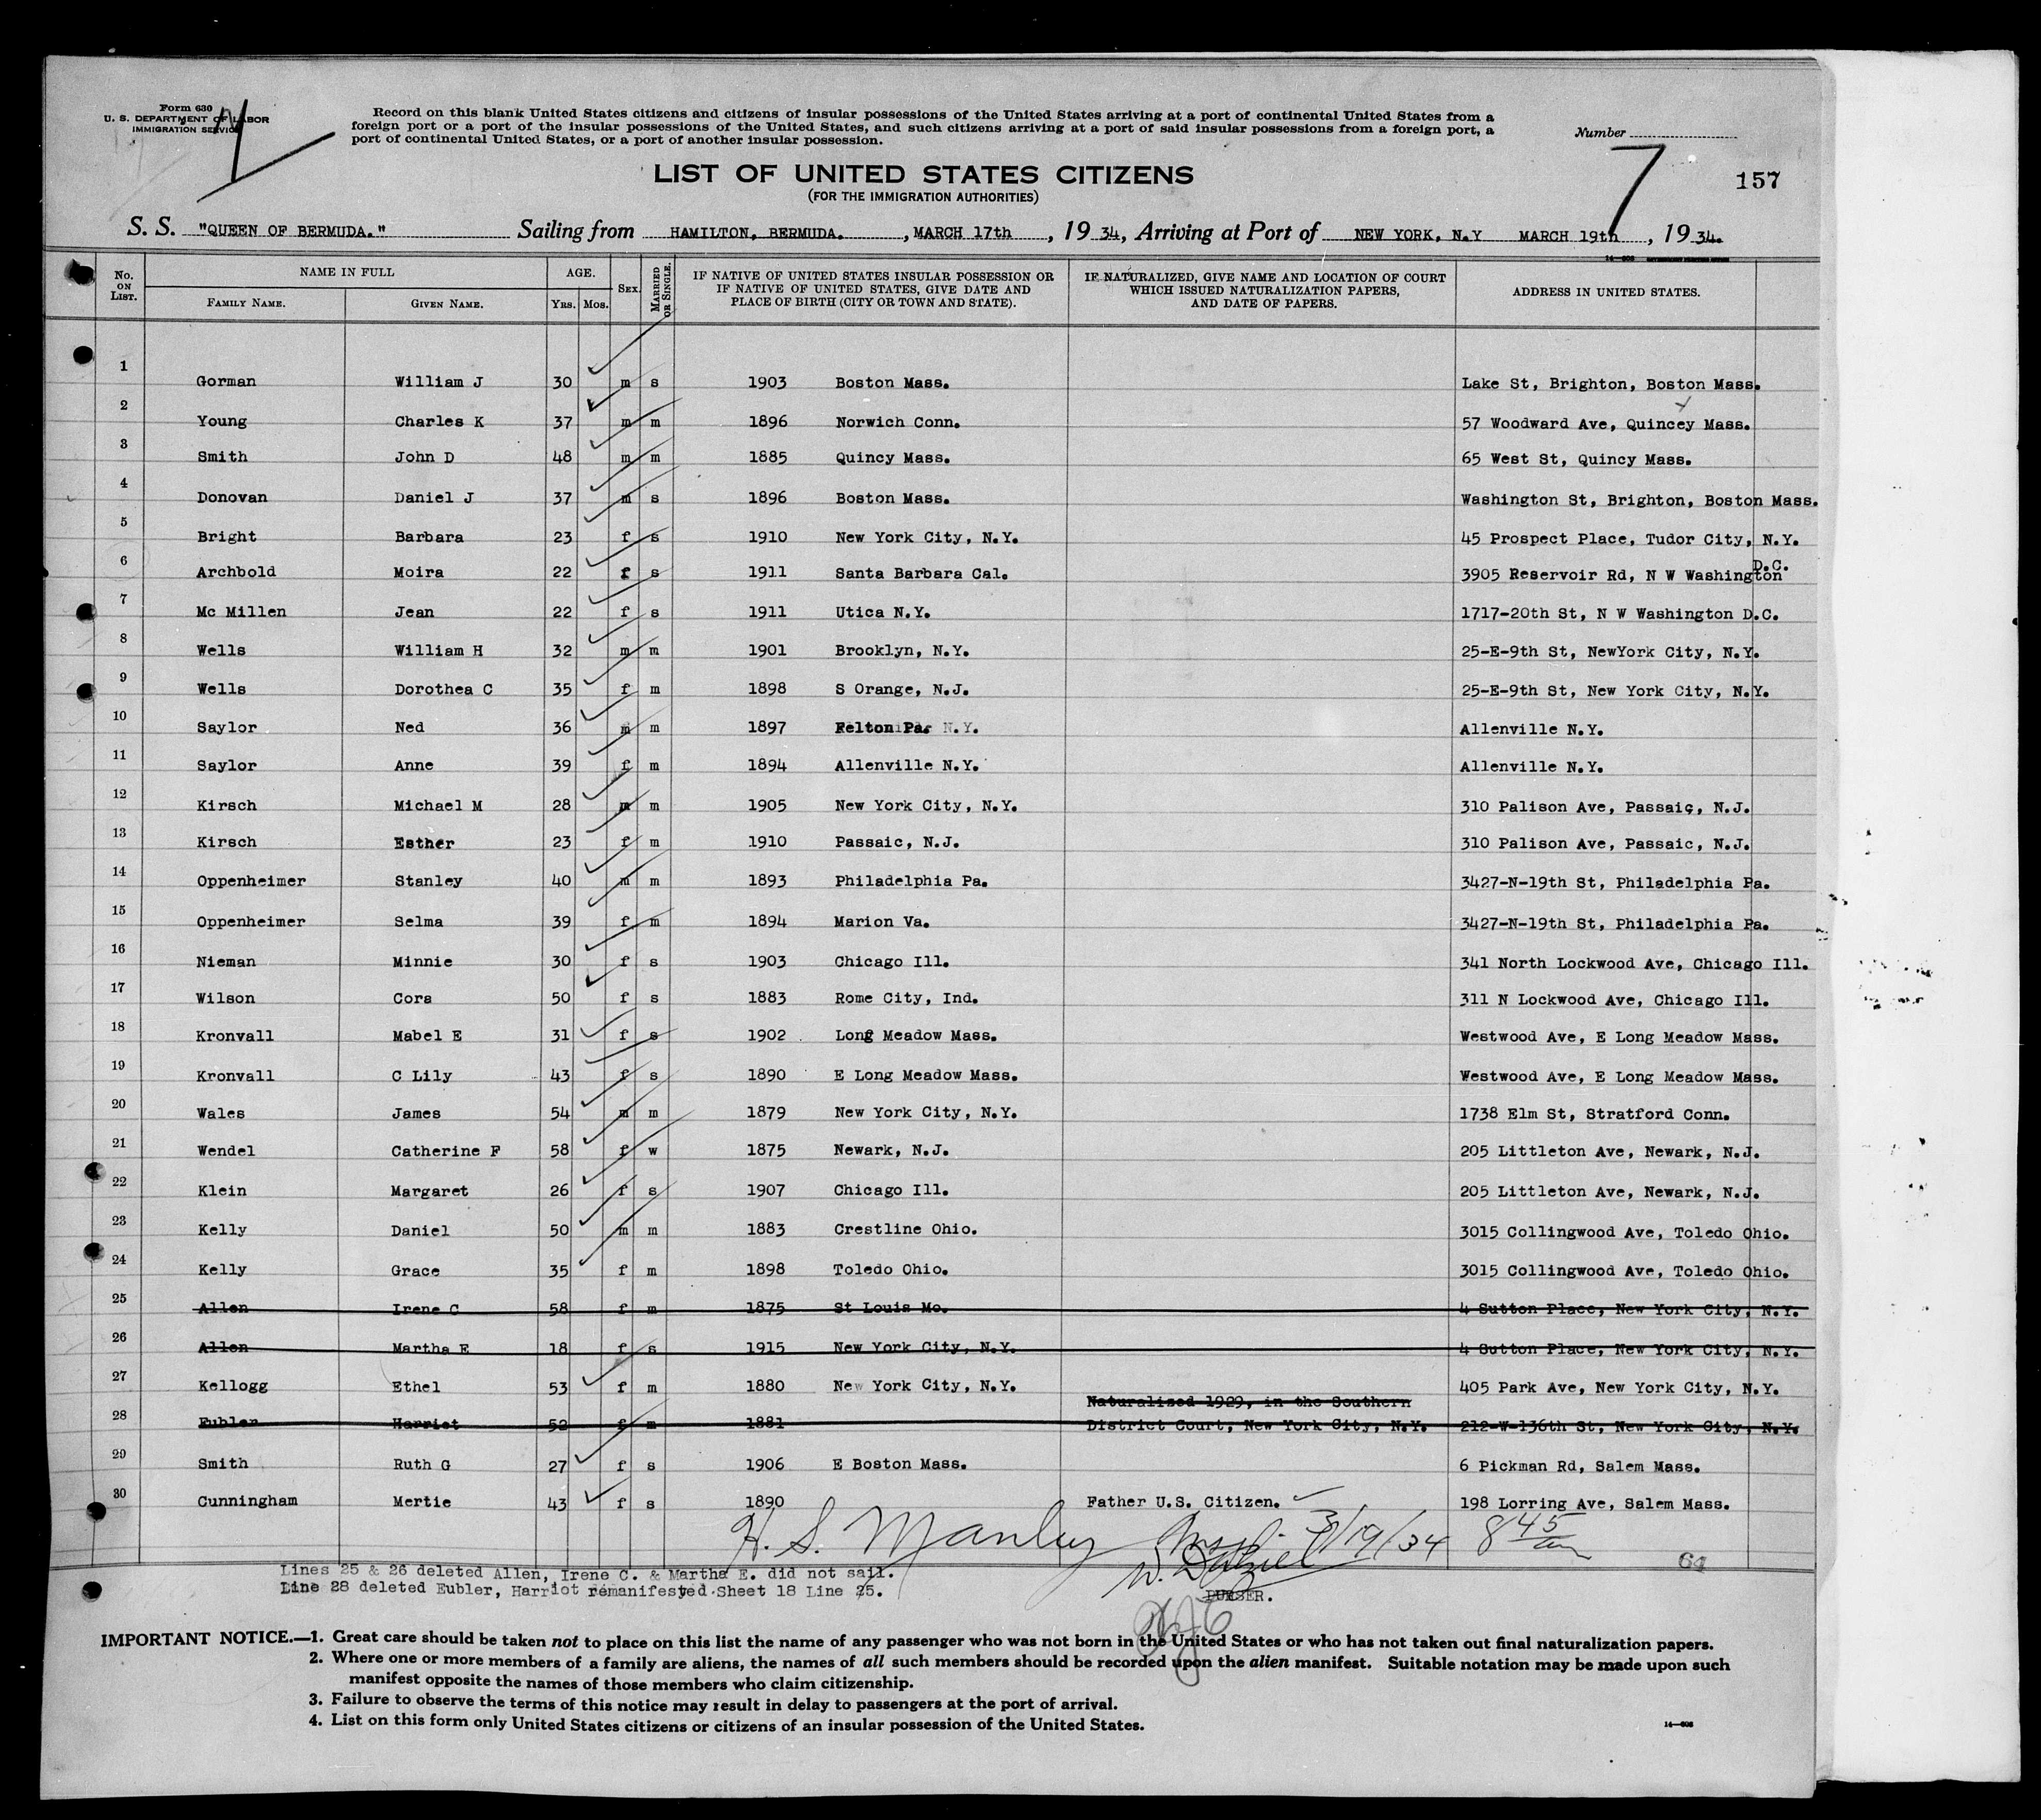 Form 630
U. S. DEPARTMENT OF LABOR
IMMIGRATION SERVICE
Record on this blank United States citizens and citizens of insular possessions of the United States arriving at a port of continental United States from a
foreign port or a port of the insular possessions of the United States, and such citizens arriving at a port of said insular possessions from a foreign port, a
port of continental United States, or a port of another insular possession.
Number
7
157
LIST OF UNITED STATES CITIZENS
(FOR THE IMMIGRATION AUTHORITIES)
S. S. "QUEEN OF BERMUDA." Sailing from HAMILTON, BERMUDA. , MARCH 17th , 19 34, Arriving at Port of NEW YORK, N.Y MARCH 19th , 19 34.
No. ON LIST. NAME IN FULL FAMILY NAME. GIVEN NAME. AGE. YRS. MOS. SEX. MARRIED OR SINGLE. IF NATIVE OF UNITED STATES INSULAR POSSESSION OR IF NATIVE OF UNITED STATES, GIVE DATE AND PLACE OF BIRTH (CITY OR TOWN AND STATE). IF NATURALIZED, GIVE NAME AND LOCATION OF COURT WHICH ISSUED NATURALIZATION PAPERS, AND DATE OF PAPERS. ADDRESS IN UNITED STATES.
1 Gorman William J 30 m s 1903 Boston Mass. Lake St, Brighton, Boston Mass.
2 Young Charles K 37 m m 1896 Norwich Conn. 57 Woodward Ave, Quincey Mass.
3 Smith John D 48 m m 1885 Quincy Mass. 65 West St, Quincy Mass.
4 Donovan Daniel J 37 m s 1896 Boston Mass. Washington St, Brighton, Boston Mass.
5 Bright Barbara 23 f s 1910 New York City, N.Y. 45 Prospect Place, Tudor City, N.Y.
6 Archbold Moira 22 f s 1911 Santa Barbara Cal. 3905 Reservoir Rd, N W Washington D.C.
7 Mc Millen Jean 22 f s 1911 Utica N.Y. 1717-20th St, N W Washington D.C.
8 Wells William H 32 m m 1901 Brooklyn, N.Y. 25-E-9th St, NewYork City, N.Y.
9 Wells Dorothea C 35 f m 1898 S Orange, N.J. 25-E-9th St, New York City, N.Y.
10 Saylor Ned 36 m m 1897 Felton Pa. N.Y. Allenville N.Y.
11 Saylor Anne 39 f m 1894 Allenville N.Y. Allenville N.Y.
12 Kirsch Michael M 28 m m 1905 New York City, N.Y. 310 Palison Ave, Passaic, N.J.
13 Kirsch Esther 23 f m 1910 Passaic, N.J. 310 Palison Ave, Passaic, N.J.
14 Oppenheimer Stanley 40 m m 1893 Philadelphia Pa. 3427-N-19th St, Philadelphia Pa.
15 Oppenheimer Selma 39 f m 1894 Marion Va. 3427-N-19th St, Philadelphia Pa.
16 Nieman Minnie 30 f s 1903 Chicago Ill. 341 North Lockwood Ave, Chicago Ill.
17 Wilson Cora 50 f s 1883 Rome City, Ind. 311 N Lockwood Ave, Chicago Ill.
18 Kronvall Mabel E 31 f s 1902 Long Meadow Mass. Westwood Ave, E Long Meadow Mass.
19 Kronvall C Lily 43 f s 1890 E Long Meadow Mass. Westwood Ave, E Long Meadow Mass.
20 Wales James 54 m m 1879 New York City, N.Y. 1738 Elm St, Stratford Conn.
21 Wendel Catherine F 58 f w 1875 Newark, N.J. 205 Littleton Ave, Newark, N.J.
22 Klein Margaret 26 f s 1907 Chicago Ill. 205 Littleton Ave, Newark, N.J.
23 Kelly Daniel 50 m m 1883 Crestline Ohio. 3015 Collingwood Ave, Toledo Ohio.
24 Kelly Grace 35 f m 1898 Toledo Ohio. 3015 Collingwood Ave, Toledo Ohio.
25 Allen Irene C 58 f m 1875 St Louis Mo. 4 Sutton Place, New York City, N.Y.
26 Allen Martha E 18 f s 1915 New York City, N.Y. 4 Sutton Place, New York City, N.Y.
27 Kellogg Ethel 53 f m 1880 New York City, N.Y. 405 Park Ave, New York City, N.Y.
Naturalized 1929, in the Southern
28 Eubler Harriet 52 f m 1881 District Court, New York City, N.Y. 212-W-136th St, New York City, N.Y.
29 Smith Ruth G 27 f s 1906 E Boston Mass. 6 Pickman Rd, Salem Mass.
30 Cunningham Mertie 43 f s 1890 Father U.S. Citizen. 198 Lorring Ave, Salem Mass.
H. S. Manley Insp. 3/19/34 8 45 am
64
Lines 25 & 26 deleted Allen, Irene C. & Martha E. did not sail.
Line 28 deleted Eubler, Harriot remanifested Sheet 18 Line 25.
PURSER.
IMPORTANT NOTICE.—1. Great care should be taken not to place on this list the name of any passenger who was not born in the United States or who has not taken out final naturalization papers.
2. Where one or more members of a family are aliens, the names of all such members should be recorded upon the alien manifest. Suitable notation may be made upon such
manifest opposite the names of those members who claim citizenship.
3. Failure to observe the terms of this notice may result in delay to passengers at the port of arrival.
4. List on this form only United States citizens or citizens of an insular possession of the United States.